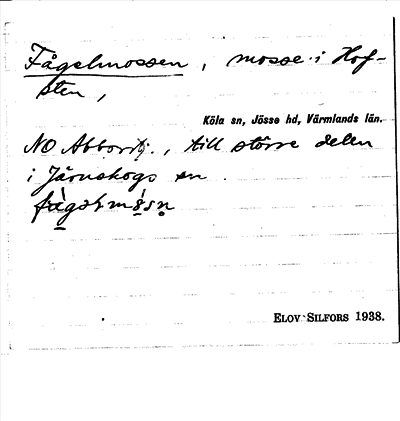 Fågelmossen, mosse i Hof-
sten,
Köla sn, Jösse hd, Värmlands län.
NO Abborrtj., till större delen
i Järnskogs sn
ELOV SILFORS 1938.